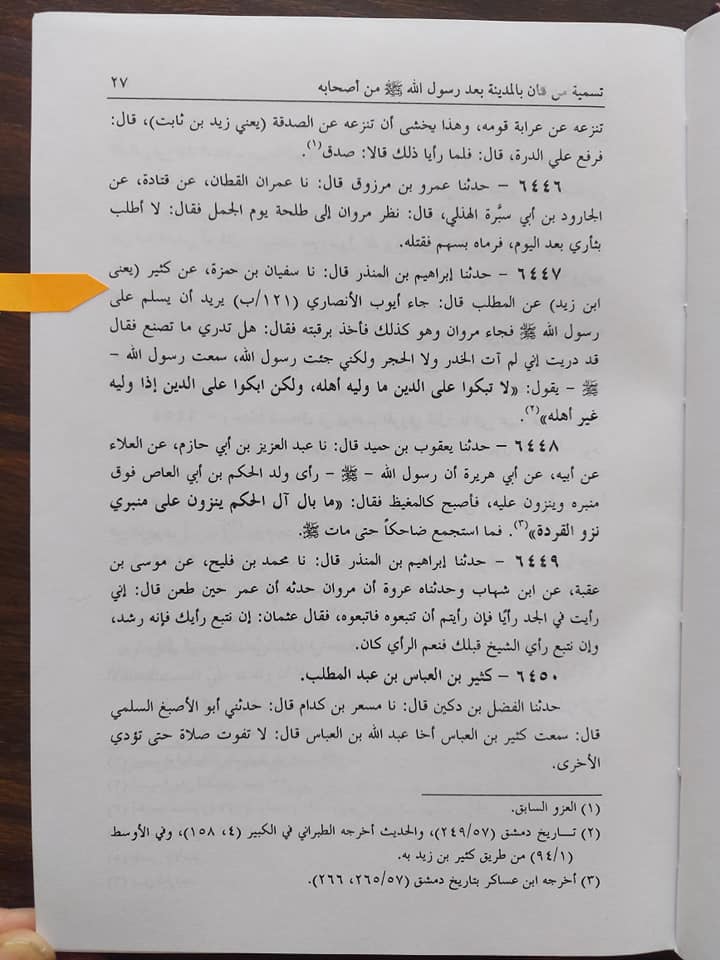 تسمية من كان بالمدينة بعد رسول الله ﷺ من أصحابه ٢٧
تنزعه عن عرابة قومه، وهذا يخشى أن تنزعه عن الصدقة (يعني زيد بن ثابت)، قال:
فرفع علي الدرة، قال: فلما رأيا ذلك قالا: صدق(١).
٦٤٤٦ – حدثنا عمرو بن مرزوق قال: نا عمران القطان، عن قتادة، عن
الجارود بن أبي سبَّرة الهذلي، قال: نظر مروان إلى طلحة يوم الجمل فقال: لا أطلب
بثأري بعد اليوم، فرماه بسهم فقتله.
٦٤٤٧ – حدثنا إبراهيم بن المنذر قال: نا سفيان بن حمزة، عن كثير (يعنى
ابن زيد) عن المطلب قال: جاء أيوب الأنصاري (١٢١/ب) يريد أن يسلم على
رسول الله ﷺ فجاء مروان وهو كذلك فأخذ برقبته فقال: هل تدري ما تصنع فقال
قد دريت إني لم آت الخدر ولا الحجر ولكني جئت رسول الله، سمعت رسول الله –
ﷺ – يقول: «لا تبكوا على الدين ما وليه أهله، ولكن ابكوا على الدين إذا وليه
غير أهله»(٢).
٦٤٤٨ – حدثنا يعقوب بن حميد قال: نا عبد العزيز بن أبي حازم، عن العلاء
عن أبيه، عن أبي هريرة أن رسول الله – ﷺ – رأى ولد الحكم بن أبي العاص فوق
منبره وينزون عليه، فأصبح كالمغيظ فقال: «ما بال آل الحكم ينزون على منبري
نزو القردة»(٣). فما استجمع ضاحكاً حتى مات ﷺ.
٦٤٤٩ – حدثنا إبراهيم بن المنذر قال: نا محمد بن فليح، عن موسى بن
عقبة، عن ابن شهاب وحدثناه عروة أن مروان حدثه أن عمر حين طعن قال: إني
رأيت في الجد رأيًا فإن رأيتم أن تتبعوه فاتبعوه، فقال عثمان: إن نتبع رأيك فإنه رشد،
وإن نتبع رأي الشيخ قبلك فنعم الرأي كان.
٦٤٥٠ – كثير بن العباس بن عبد المطلب.
حدثنا الفضل بن دكين قال: نا مسعر بن كدام قال: حدثني أبو الأصبغ السلمي
قال: سمعت كثير بن العباس أخا عبد الله بن العباس قال: لا تفوت صلاة حتى تؤدي
الأخرى.
(١) العزو السابق.
(٢) تاريخ دمشق (٢٤٩/٥٧)، والحديث أخرجه الطبراني في الكبير (٤، ١٥٨)، وفي الأوسط
(٩٤/١) من طريق كثير بن زيد به.
(٣) أخرجه ابن عساكر بتاريخ دمشق (٢٦٥/٥٧، ٢٦٦).